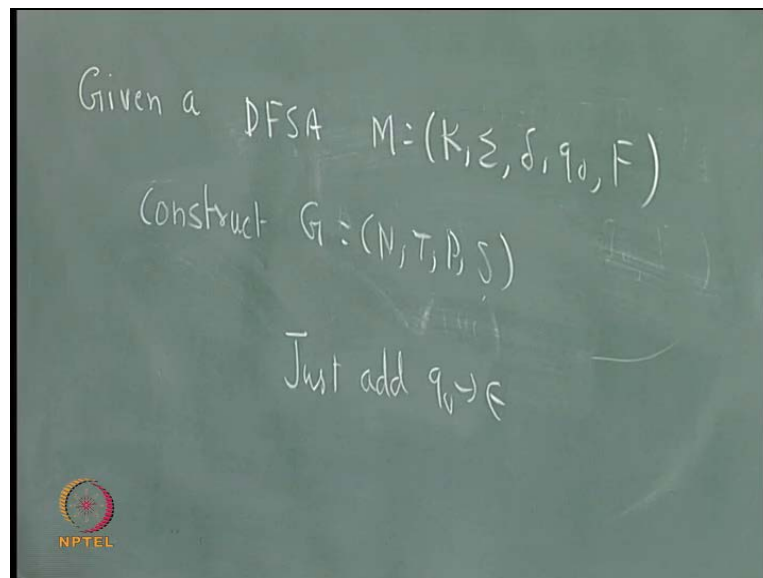 Given a DFSA M = (K, Σ, δ, q₀, F)
Construct G = (N, T, P, S)
Just add q₀ → ϵ
NPTEL